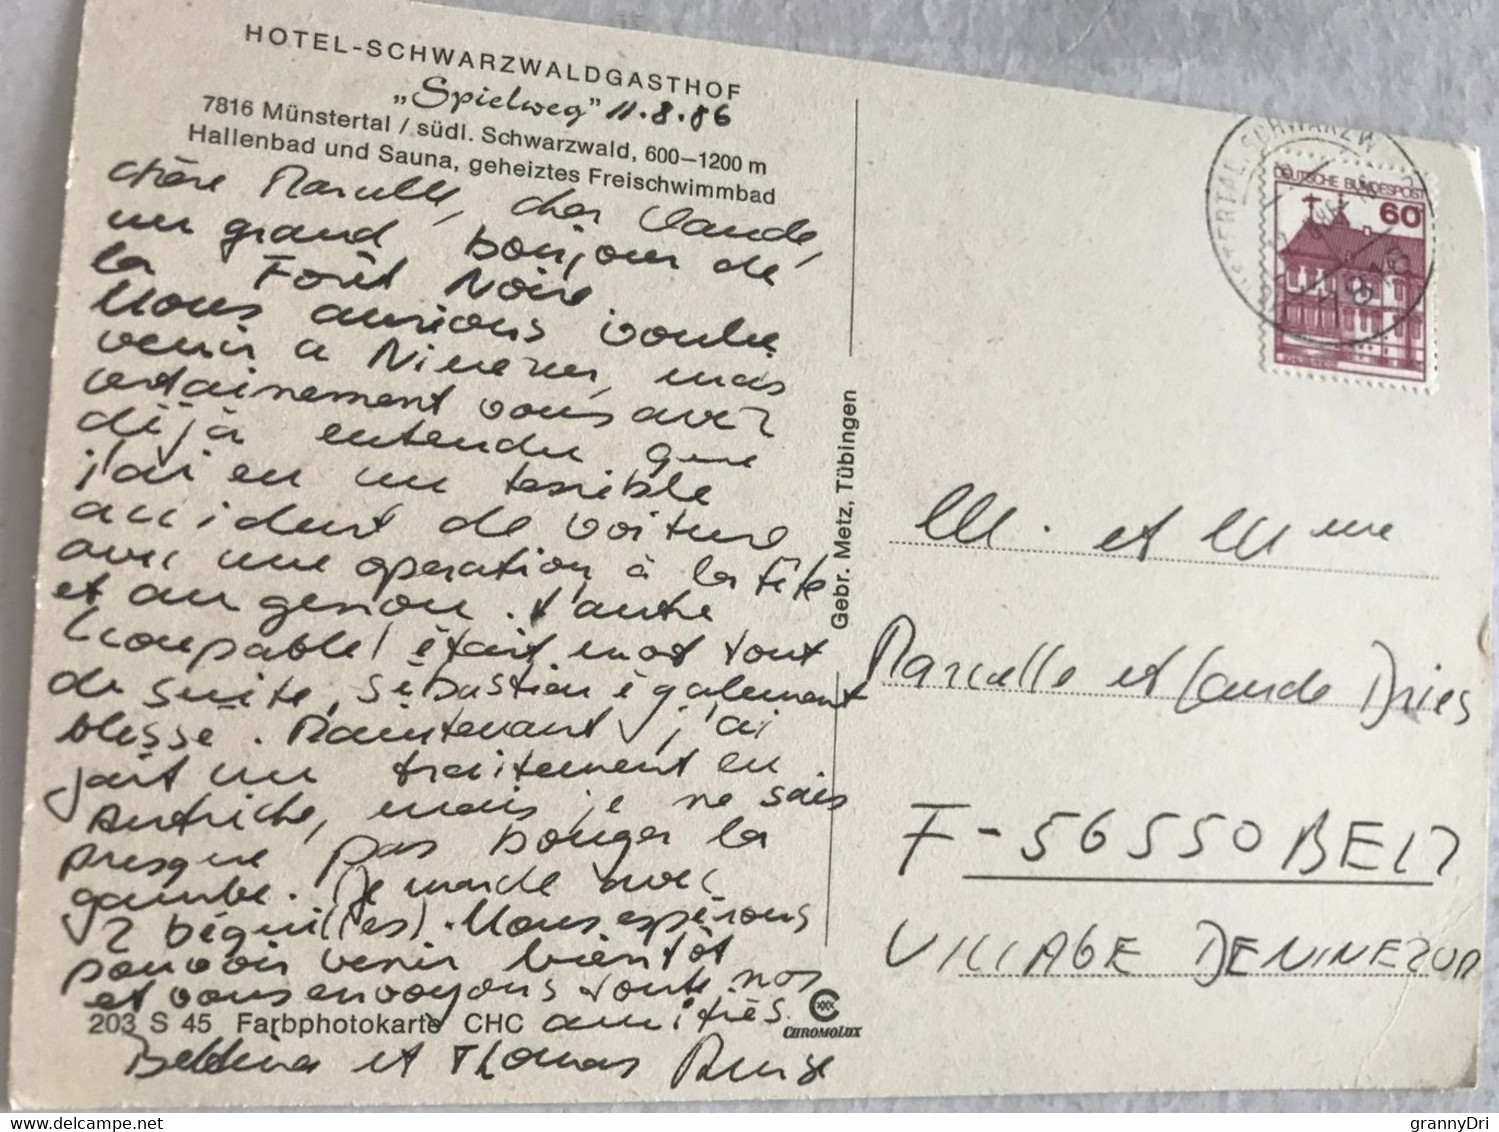 HOTEL-SCHWARZWALDGASTHOF
„Spielweg" 11.8.86
7816 Münstertal / südl. Schwarzwald, 600–1200 m
Hallenbad und Sauna, geheiztes Freischwimmbad
chère Marcelle, cher Claude,
un grand bonjour de
la Forêt Noire.
Nous aurions voulu
venir a Ninezur, mais
certainement vous avez
déjà entendu que
j'ai eu un terrible
accident de voiture
avec une operation à la tête
et au genou. L'autre
(coupable) était mort tout
de suite, Sébastien également
blessé. Maintenant, j'ai
fait un traitement en
Autriche, mais je ne sais
presque pas bouger la
jambe. (Je marche avec
2 béquilles). Nous espérons
pouvoir venir bientôt
et vous envoyons toute nos
amitiés.
203 S 45 Farbphotokarte CHC
CHROMOLUX
Bettina et Thomas
Gebr. Metz, Tübingen
DEUTSCHE BUNDESPOST
60
M. et Mme
Marcelle et Claude Dries
F-56550 BELZ
VILLAGE DE NINEZUR
www.delcampe.net
grannyDri